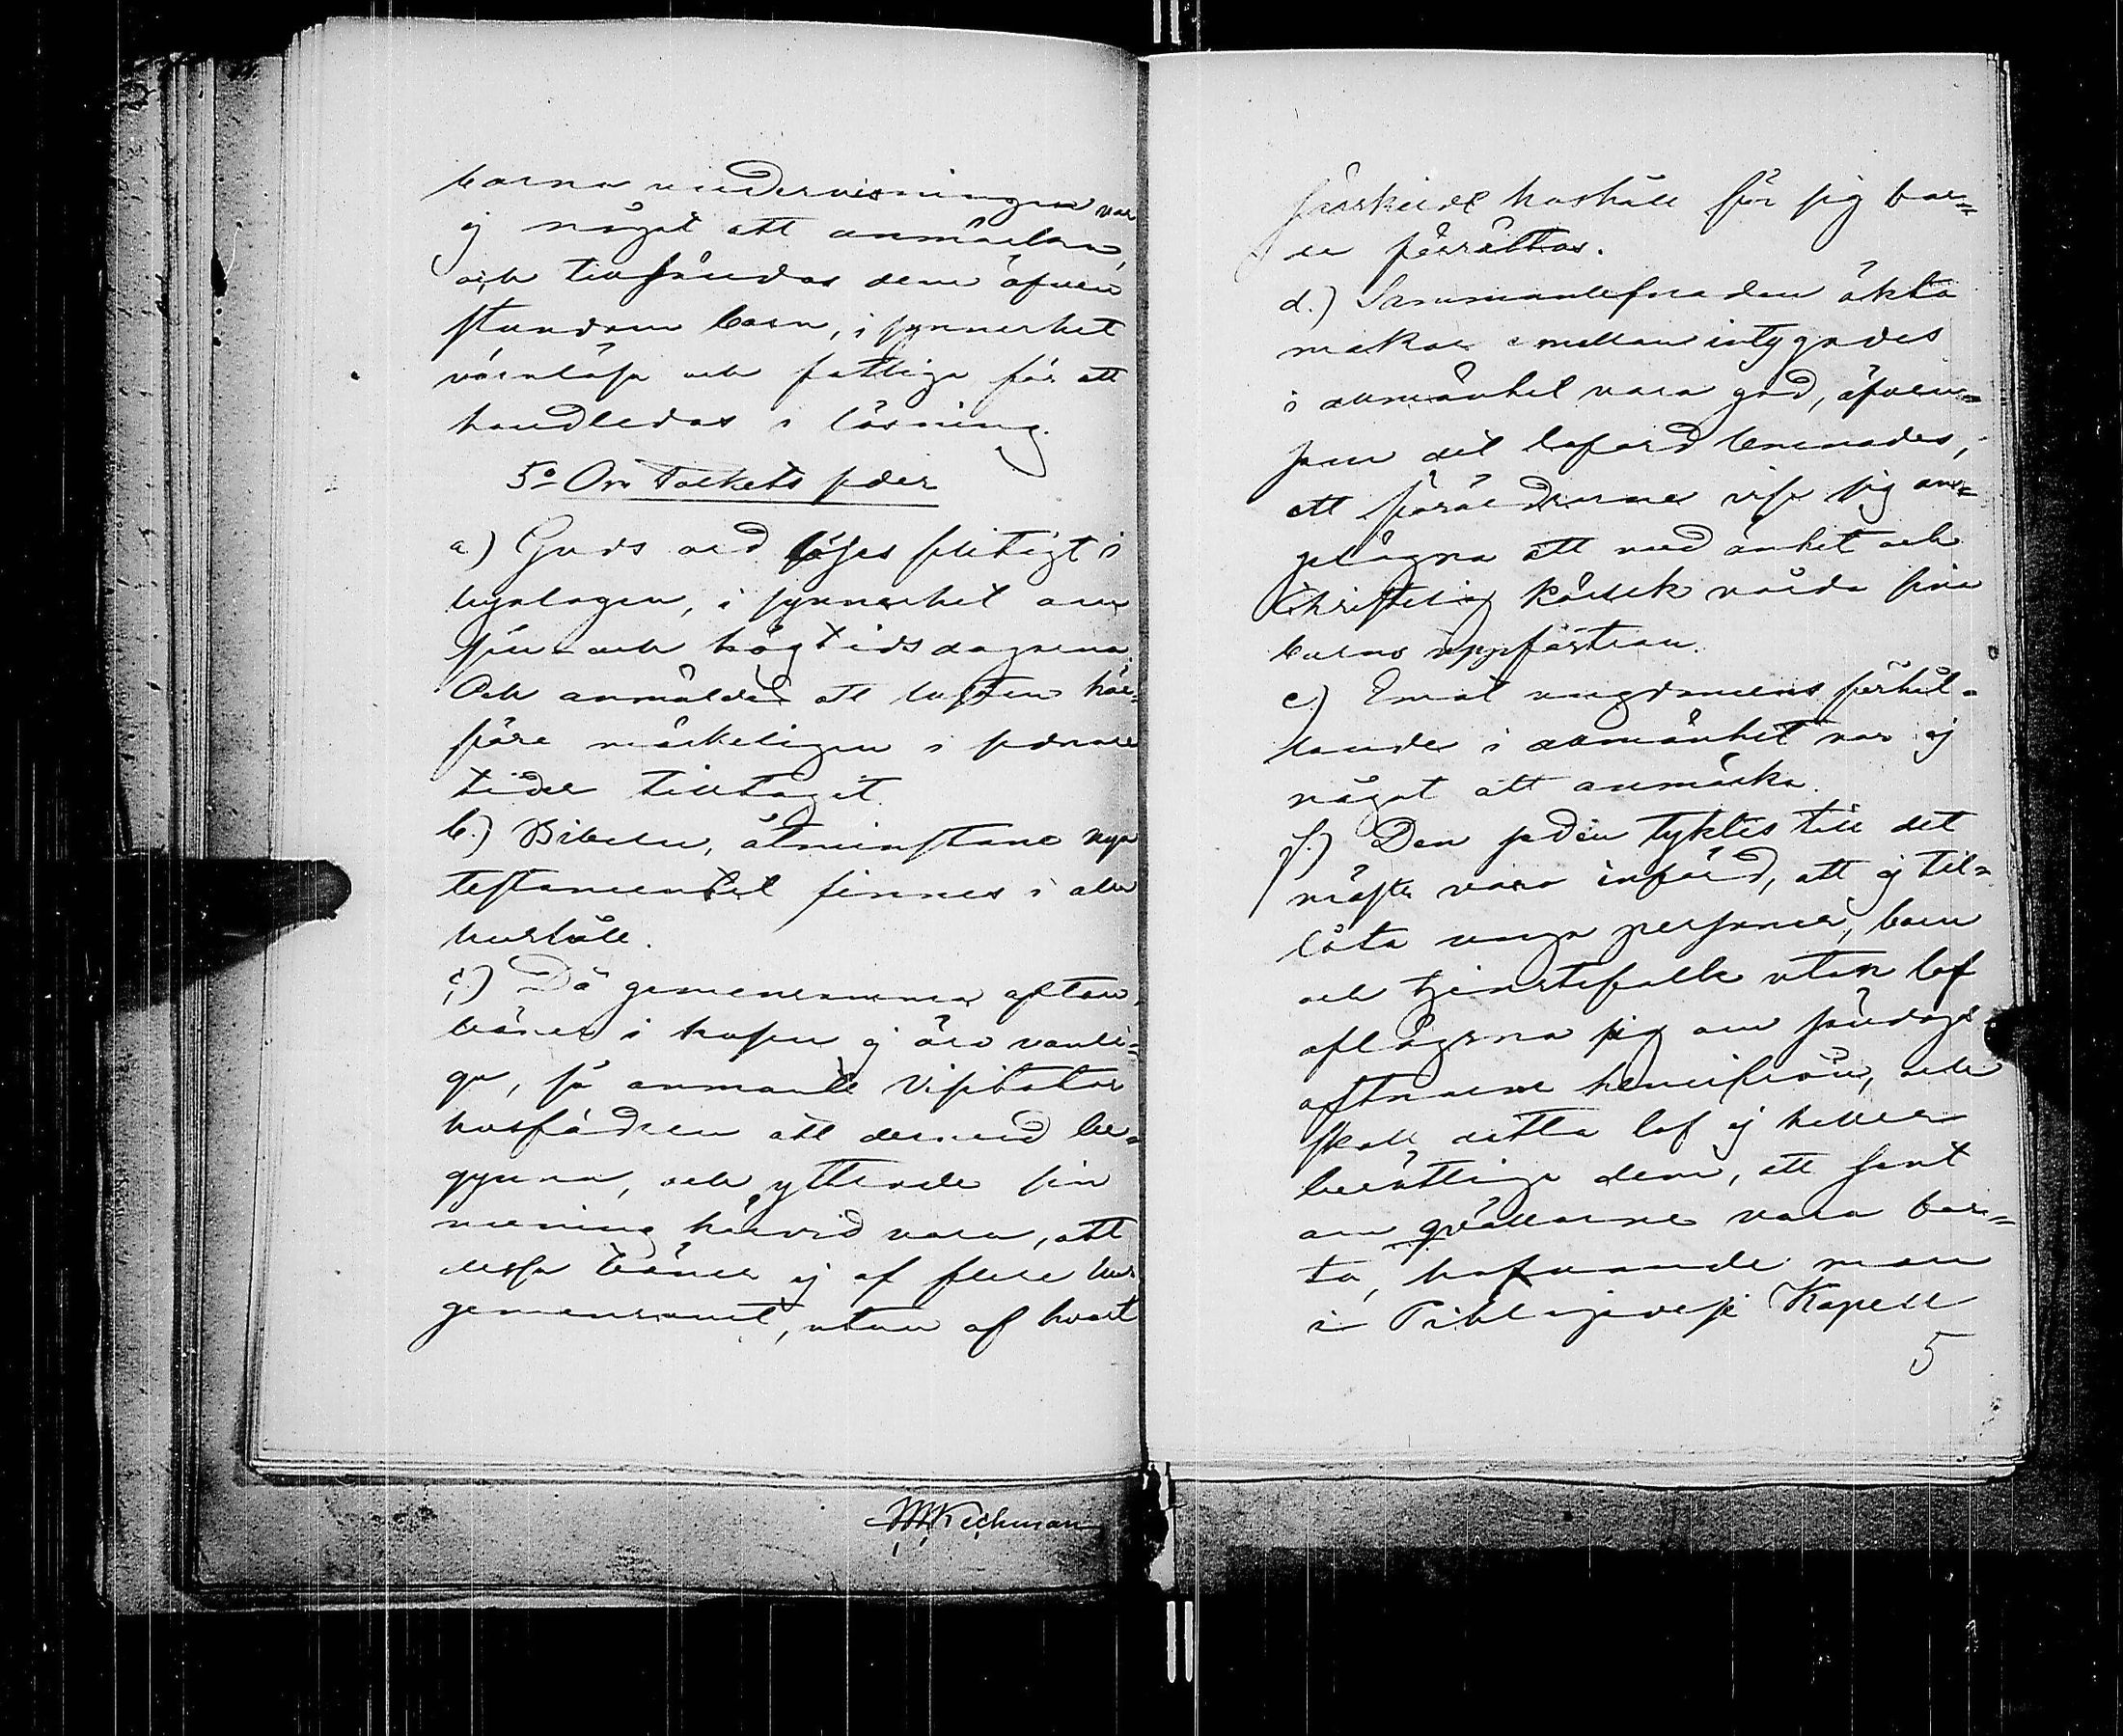 barna undervisningen var
ej något att anmärka,
och tillsändas dem äfven
stundom barn, i synnerhet
värnlösa och fattiga för att
handledas i läsning.
5o Om Folkets seder
a) Guds ord läses flitigt i
byalagen, i synnerhet om
sön- och högtidsdagarna.
Och anmäldes att lusten här-
före märkeligen i senare
tider tilltagit.
b.) Bibeln, åtminstone nya
testamentet finnes i alla
hushåll.
c.) Då gemensamma afton-
böner i husen ej äro vanli-
ga, så anmante Visitator
husfädren att dermed be-
gynna, och yttrade sin
mening härvid vara, att
dessa böner ej af flere hus
gemensamt, utan af hvart
särskildt hushåll för sig bor-
de förrättas.
d.) Sammanlefnaden äkta
makar emellan intygades
i allmänhet vara god, äfven-
som det loford lemnades,
att föräldrarne visa sig an-
gelägna att med ömhet och
Christelig kärlek vårda sina
barns uppfostran.
e.) Emot ungdomens förhål-
lande i allmänhet var ej
något att anmärka.
f.) Den seden tycktes till det
mästa vara införd, att ej til-
låta unga personer, barn
och tjenstefolk utan lof
aflägsna sig om söndags-
aftnarne hemifrån, och
skall detta lof ej heller
berättiga dem, att sent
om qvällarne vara bor-
ta, hafvande man
i Pihlajavesi Kapell
5